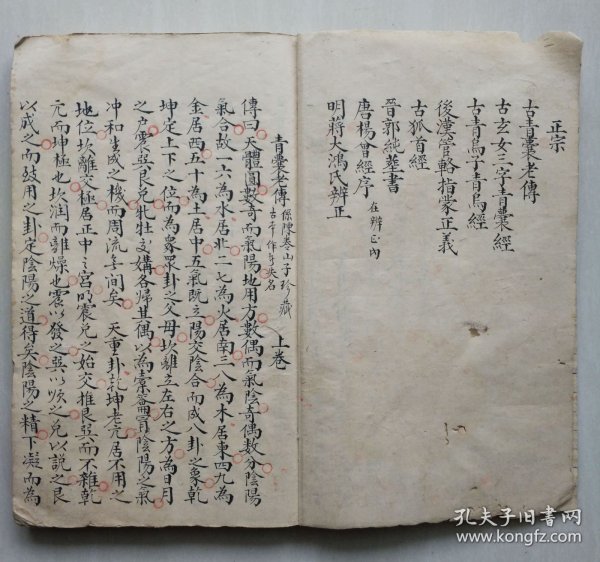 正宗
古青囊老傳
古玄女三字青囊經
古青烏子青烏經
後漢管輅指蒙正義
古狐首經
晉郭純葬書
唐楊曾經序 在辨正內
明蔣大鴻氏辨正
青囊老傳 係陳巷山子珍藏 古本作字失名 上卷
傳曰天體圓數奇而氣陽地用方數偶而氣陰奇偶數分陰陽
氣合故一六為水居北二七為火居南三八為木居東四九為
金居西五十為土居中五氣既立陽交陰合而成八卦之象乾
坤定上下之位而為衆卦之父母坎離立左右之方為日月
之 震巽艮兌牝牡交媾各歸其偶以為橐籥實陰陽之氣
冲和生成之機而周流無間矣 天重卦乾坤老亢居不用之
地位坎離交極居正中之宮明震兌之始交推艮巽而不雜乾
元而坤極也坎潤而離燥也震以發之巽以順之兌以説之艮
以成之而致用之卦定陰陽之道得矣陰陽之精下凝而為
孔夫子旧书网
www.kongfz.com